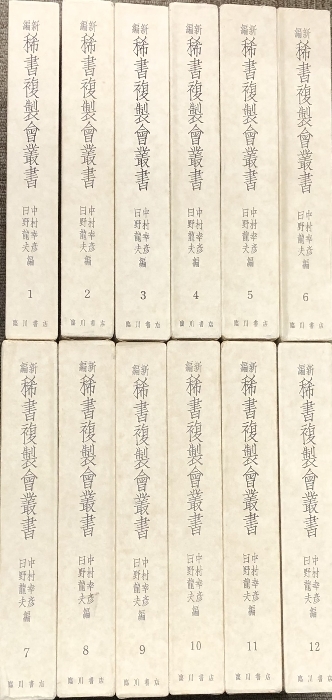 新編 稀書複製會叢書
中村幸彦
日野龍夫 編
1
臨川書店
新編 稀書複製會叢書
中村幸彦
日野龍夫 編
2
臨川書店
新編 稀書複製會叢書
中村幸彦
日野龍夫 編
3
臨川書店
新編 稀書複製會叢書
中村幸彦
日野龍夫 編
4
臨川書店
新編 稀書複製會叢書
中村幸彦
日野龍夫 編
5
臨川書店
新編 稀書複製會叢書
中村幸彦
日野龍夫 編
6
臨川書店
新編 稀書複製會叢書
中村幸彦
日野龍夫 編
7
臨川書店
新編 稀書複製會叢書
中村幸彦
日野龍夫 編
8
臨川書店
新編 稀書複製會叢書
中村幸彦
日野龍夫 編
9
臨川書店
新編 稀書複製會叢書
中村幸彦
日野龍夫 編
10
臨川書店
新編 稀書複製會叢書
中村幸彦
日野龍夫 編
11
臨川書店
新編 稀書複製會叢書
中村幸彦
日野龍夫 編
12
臨川書店